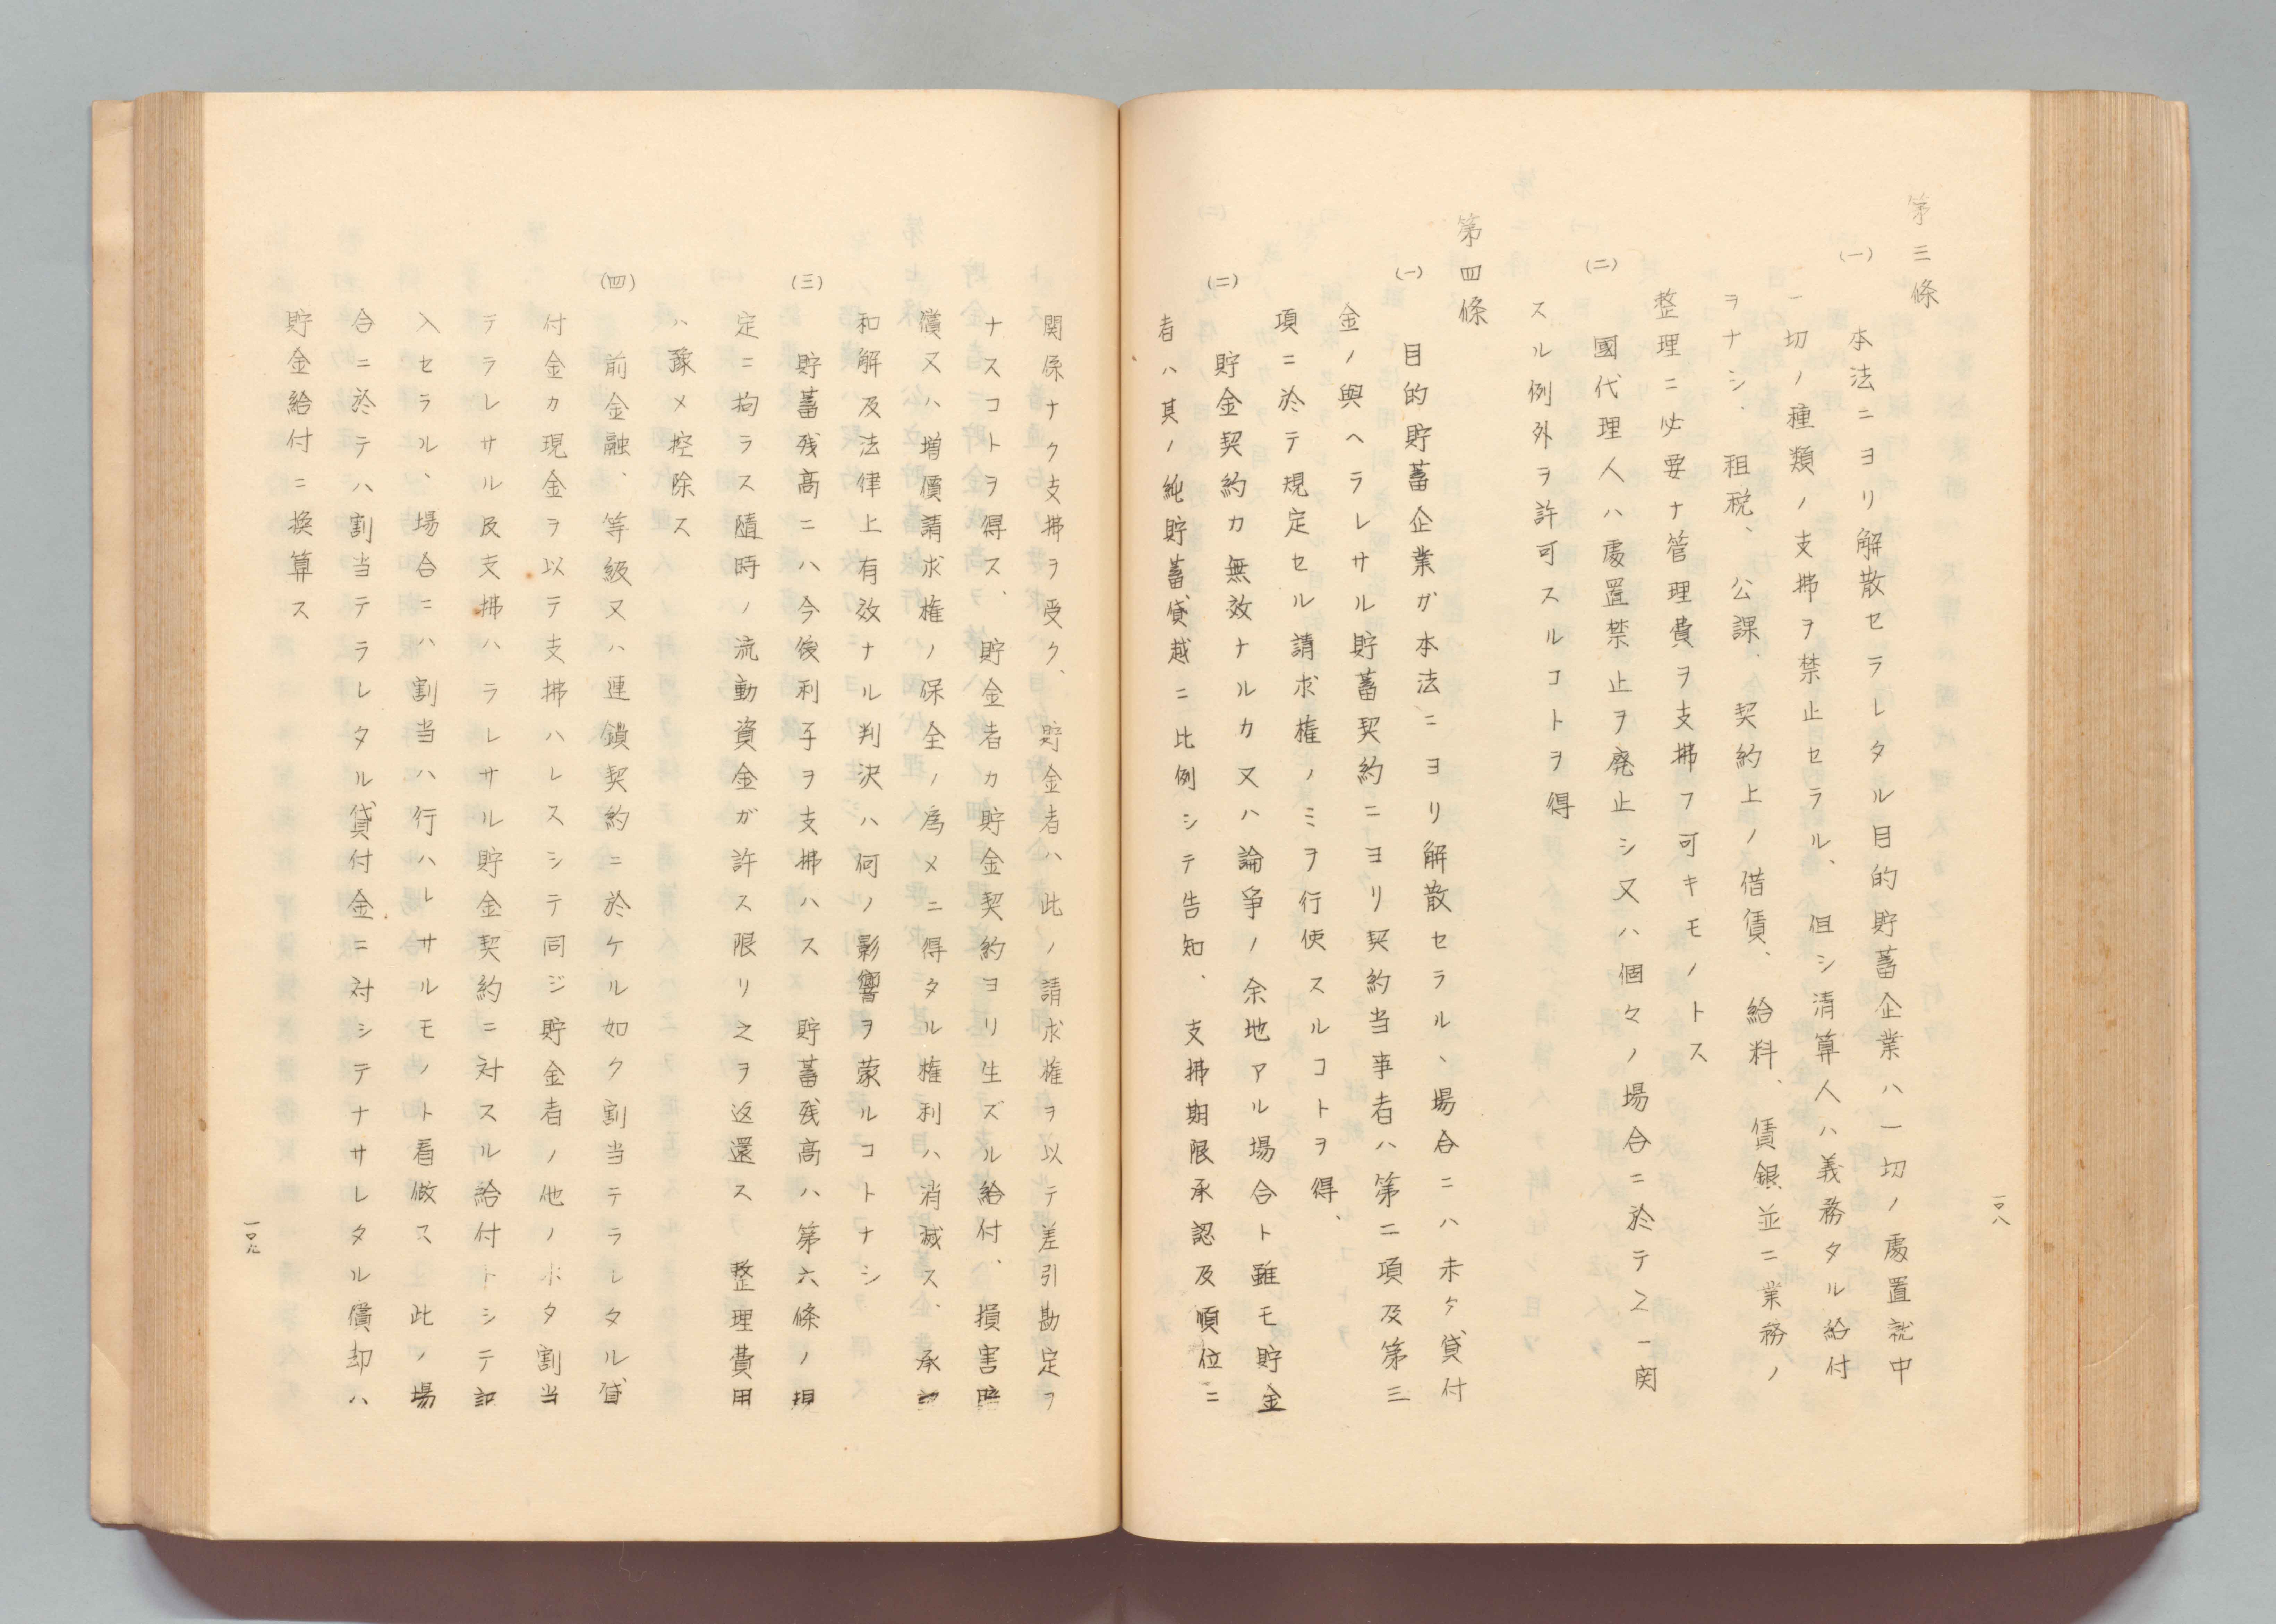 第三條
(一) 本法ニヨリ解散セラレタル目的貯蓄企業ハ一切ノ處置就中
一切ノ種類ノ支拂ヲ禁止セラル、但シ清算人ハ義務タル給付
ヲナシ、租税、公課、契約上ノ借賃、給料、賃銀並ニ業務ノ
整理ニ必要ナ管理費ヲ支拂フ可キモノトス
(二) 國代理人ハ處置禁止ヲ廃止シ又ハ個々ノ場合ニ於テ之ニ関
スル例外ヲ許可スルコトヲ得
第四條
(一) 目的貯蓄企業ガ本法ニヨリ解散セラル、場合ニハ未ダ貸付
金ノ與ヘラレサル貯蓄契約ニヨリ契約当事者ハ第二項及第三
項ニ於テ規定セル請求権ノミヲ行使スルコトヲ得、
(二) 貯金契約カ無效ナルカ又ハ論爭ノ余地アル場合ト雖モ貯金
者ハ其ノ純貯蓄貸越ニ比例シテ告知、支拂期限承認及順位ニ
一〇八
関係ナク支拂ヲ受ク、貯金者ハ此ノ請求権ヲ以テ差引勘定ヲ
ナスコトヲ得ス、貯金者カ貯金契約ヨリ生ズル給付、損害賠
償又ハ増價請求権ノ保全ノ爲メニ得タル権利ハ消滅ス、承認
和解及法律上有效ナル判決ハ何ノ影響ヲ蒙ルコトナシ
(三) 貯蓄残高ニハ今後利子ヲ支拂ハス 貯蓄残高ハ第六條ノ規
定ニ拘ラス隨時ノ流動資金ガ許ス限リ之ヲ返還ス 整理費用
ハ豫メ控除ス
(四) 前金融、等級又ハ連鎖契約ニ於ケル如ク割当テラレタル貸
付金カ現金ヲ以テ支拂ハレスシテ同ジ貯金者ノ他ノ未タ割当
テラレサル及支拂ハラレサル貯金契約ニ対スル給付トシテ記
入セラル、場合ニハ割当ハ行ハレサルモノト看做ス 此ノ場
合ニ於テハ割当テラレタル貸付金ニ対シテナサレタル償却ハ
貯金給付ニ換算ス
一〇九